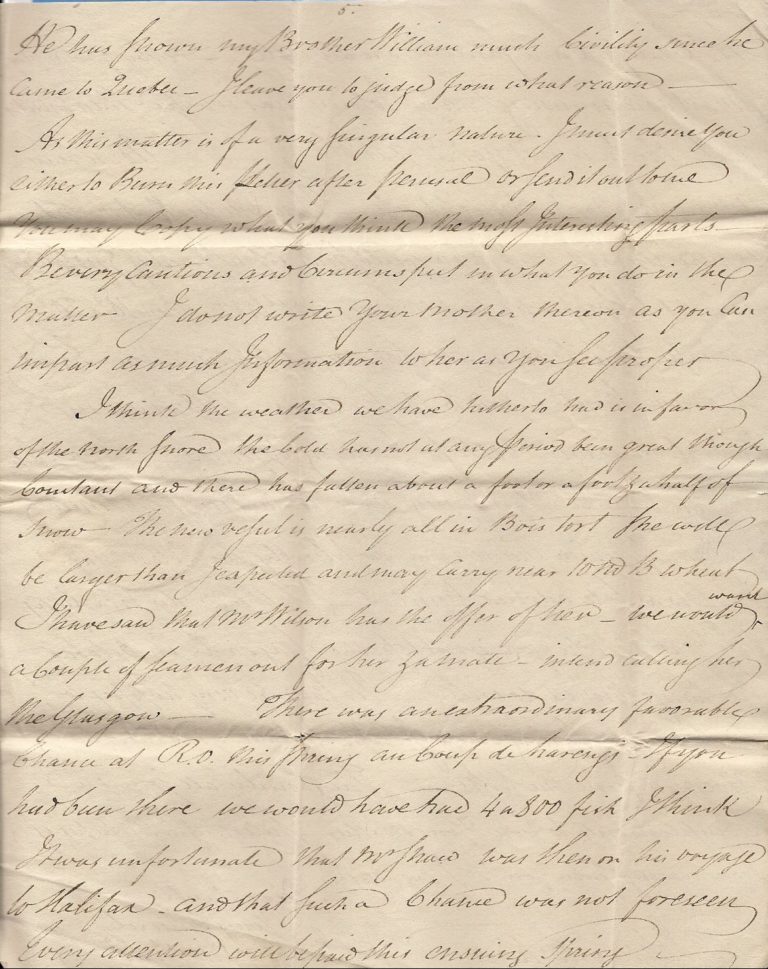 5.
He has shown my Brother William much Civility since he
Came to Quebec — I leave you to judge from what reason —
As this matter is of a very singular nature - I must desire you
either to Burn this letter after perusal or send it out to me
You may Coppy what you think the most Interesting parts
Be very Cautious and Circumspect in what you do in the
matter I do not write Your Mother thereon as you Can
impart as much Information to her as You see proper
I think the weather we have hitherto had is in favor
of the North Shore the Cold has not at any Period been great though
Constant and there has fallen about a foot or a foot & a half of
snow — The new vessel is nearly all in Bois tort She will
be larger than I expected and may carry near 10 B wheat
I have said that Mr Wilson has the offer of her - we would want
a Couple of seamen out for her & a mate - intend calling her
the Glasgow — There was an extraordinary favorable
Chance at R.O. this Spring au Coup de harengs - If you
had been there we would have had 4 a 800 fish I think
It was unfortunate that Mr Shaw was then on his voyage
to Halifax - and that such a Chance was not foreseen
Every attention will be paid this ensuing Spring —